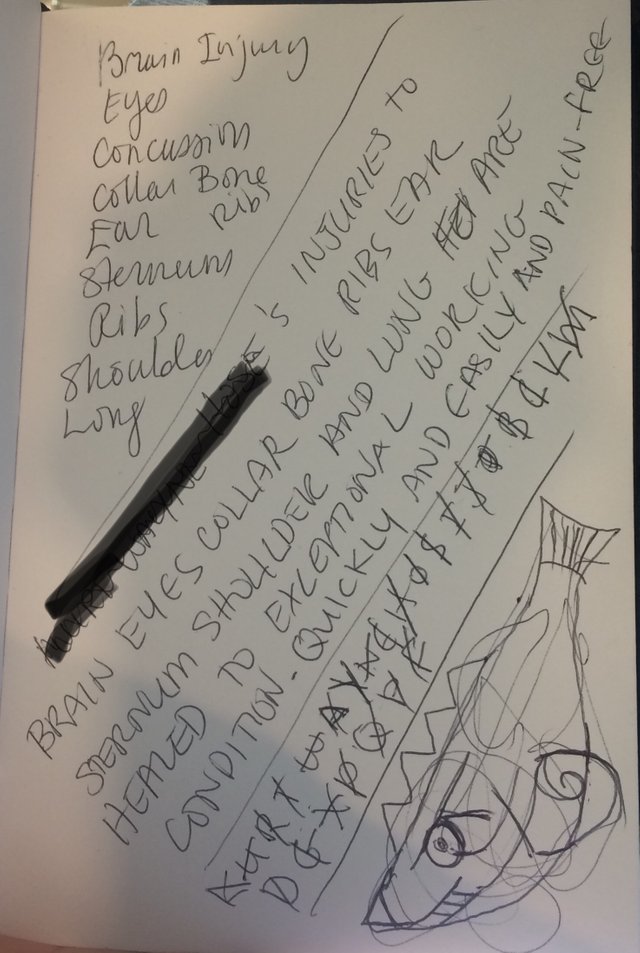 Brain Injury
Eyes
Concussion
Collar Bone
Ear Ribs
Sternum
Ribs
Shoulder
Long
'S INJURIES TO
BRAIN EYES COLLAR BONE RIBS EAR
STERNUM SHOULDER AND LUNG ARE
HEALED TO EXCEPTIONAL WORKING
CONDITION - QUICKLY AND EASILY AND PAIN-FREE